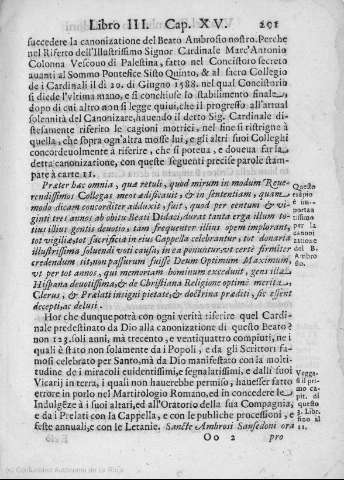 Libro III. Cap. XV. 291
succedere la canonizatione del Beato Ambrosio nostro. Perche
nel Riferto dell'Illustrissimo Signor Cardinale Marc'Antonio
Colonna Vescouo di Palestina, fatto nel Concistoro secreto
auanti al Sommo Pontefice Sisto Quinto, & al sacro Collegio
de i Cardinali il dì 20. di Giugno 1588. nel qual Concistoro
si diede l'vltima mano, e si conchiuse lo stabilimento finale,
dopo di cui altro non si legge quiui, che il progresso all'attual
solennità del Canonizare, hauendo il detto Sig. Cardinale di-
stesamente riferito le cagioni motrici, nel fine si ristrigne à
quella, che sopra ogni altra mosse lui, e gli altri suoi Colleghi
concordeuolmente à riferire, che si poteua, e doueua far la
detta canonizatione, con queste seguenti precise parole stam-
pate à carte 11.
Præter hæc omnia, quæ retuli, quod mirum in modum Reue-
rendissimos Collegas meos adijcauit, & in sententiam, quam-
modo dicam concorditer adduxit, fuit, quod per centum & vi-
ginti tres annos ab obitu Beati Didaci, durat tanta erga illum to-
tius illius gentis deuotio, tam frequenter illius opem implorant,
tot vigiliæ, tot sacrificia in eius Cappella celebrantur, tot donaria
illustrissima soluendi voti causa, in ea ponuntur, vt certè firmiter
credendum sit, non passurum fuisse Deum Optimum Maximum,
vt per tot annos, qui memoriam hominum excedunt, gens illa
Hispana deuotissima, & de Christiana Religione optimè merita,
Clerus, & Prælati insigni pietate, & doctrina præditi, sic essent
decepti, ac delusi.
Questo
esēpio
è im-
portan
tissimo
per la
canoni
zatione
del B.
Ambro
sio.
Hor che dunque potrà con ogni verità riferire quel Cardi-
nale predestinato da Dio alla canonizatione di questo Beato?
non 123. soli anni, ma trecento, e ventiquattro compiuti, ne i
quali è stato non solamente da i Popoli, e da gli Scrittori fa-
mosi celebrato per Santo, ma da Dio manifestato con la molti-
tudine de i miracoli euidentissimi, e segnalatissimi, e dalli suoi
Vicarij in terra, i quali non hauerebbe permisso, hauesser fatto
errore in porlo nel Martirologio Romano, ed in concedere le
Indulgēze à i suoi altari, ed all'Oratorio della sua Compagnia,
e da i Prelati con la Cappella, e con le publiche processioni, e
feste annuali, e con le Letanie. Sancte Ambrosi Sansedoni ora
Vegga
si il pri
mo ca
pit. di
questo
3. Libr.
fino al
11.
Oo 2 pro
(c) Comunidad Autónoma de La Rioja